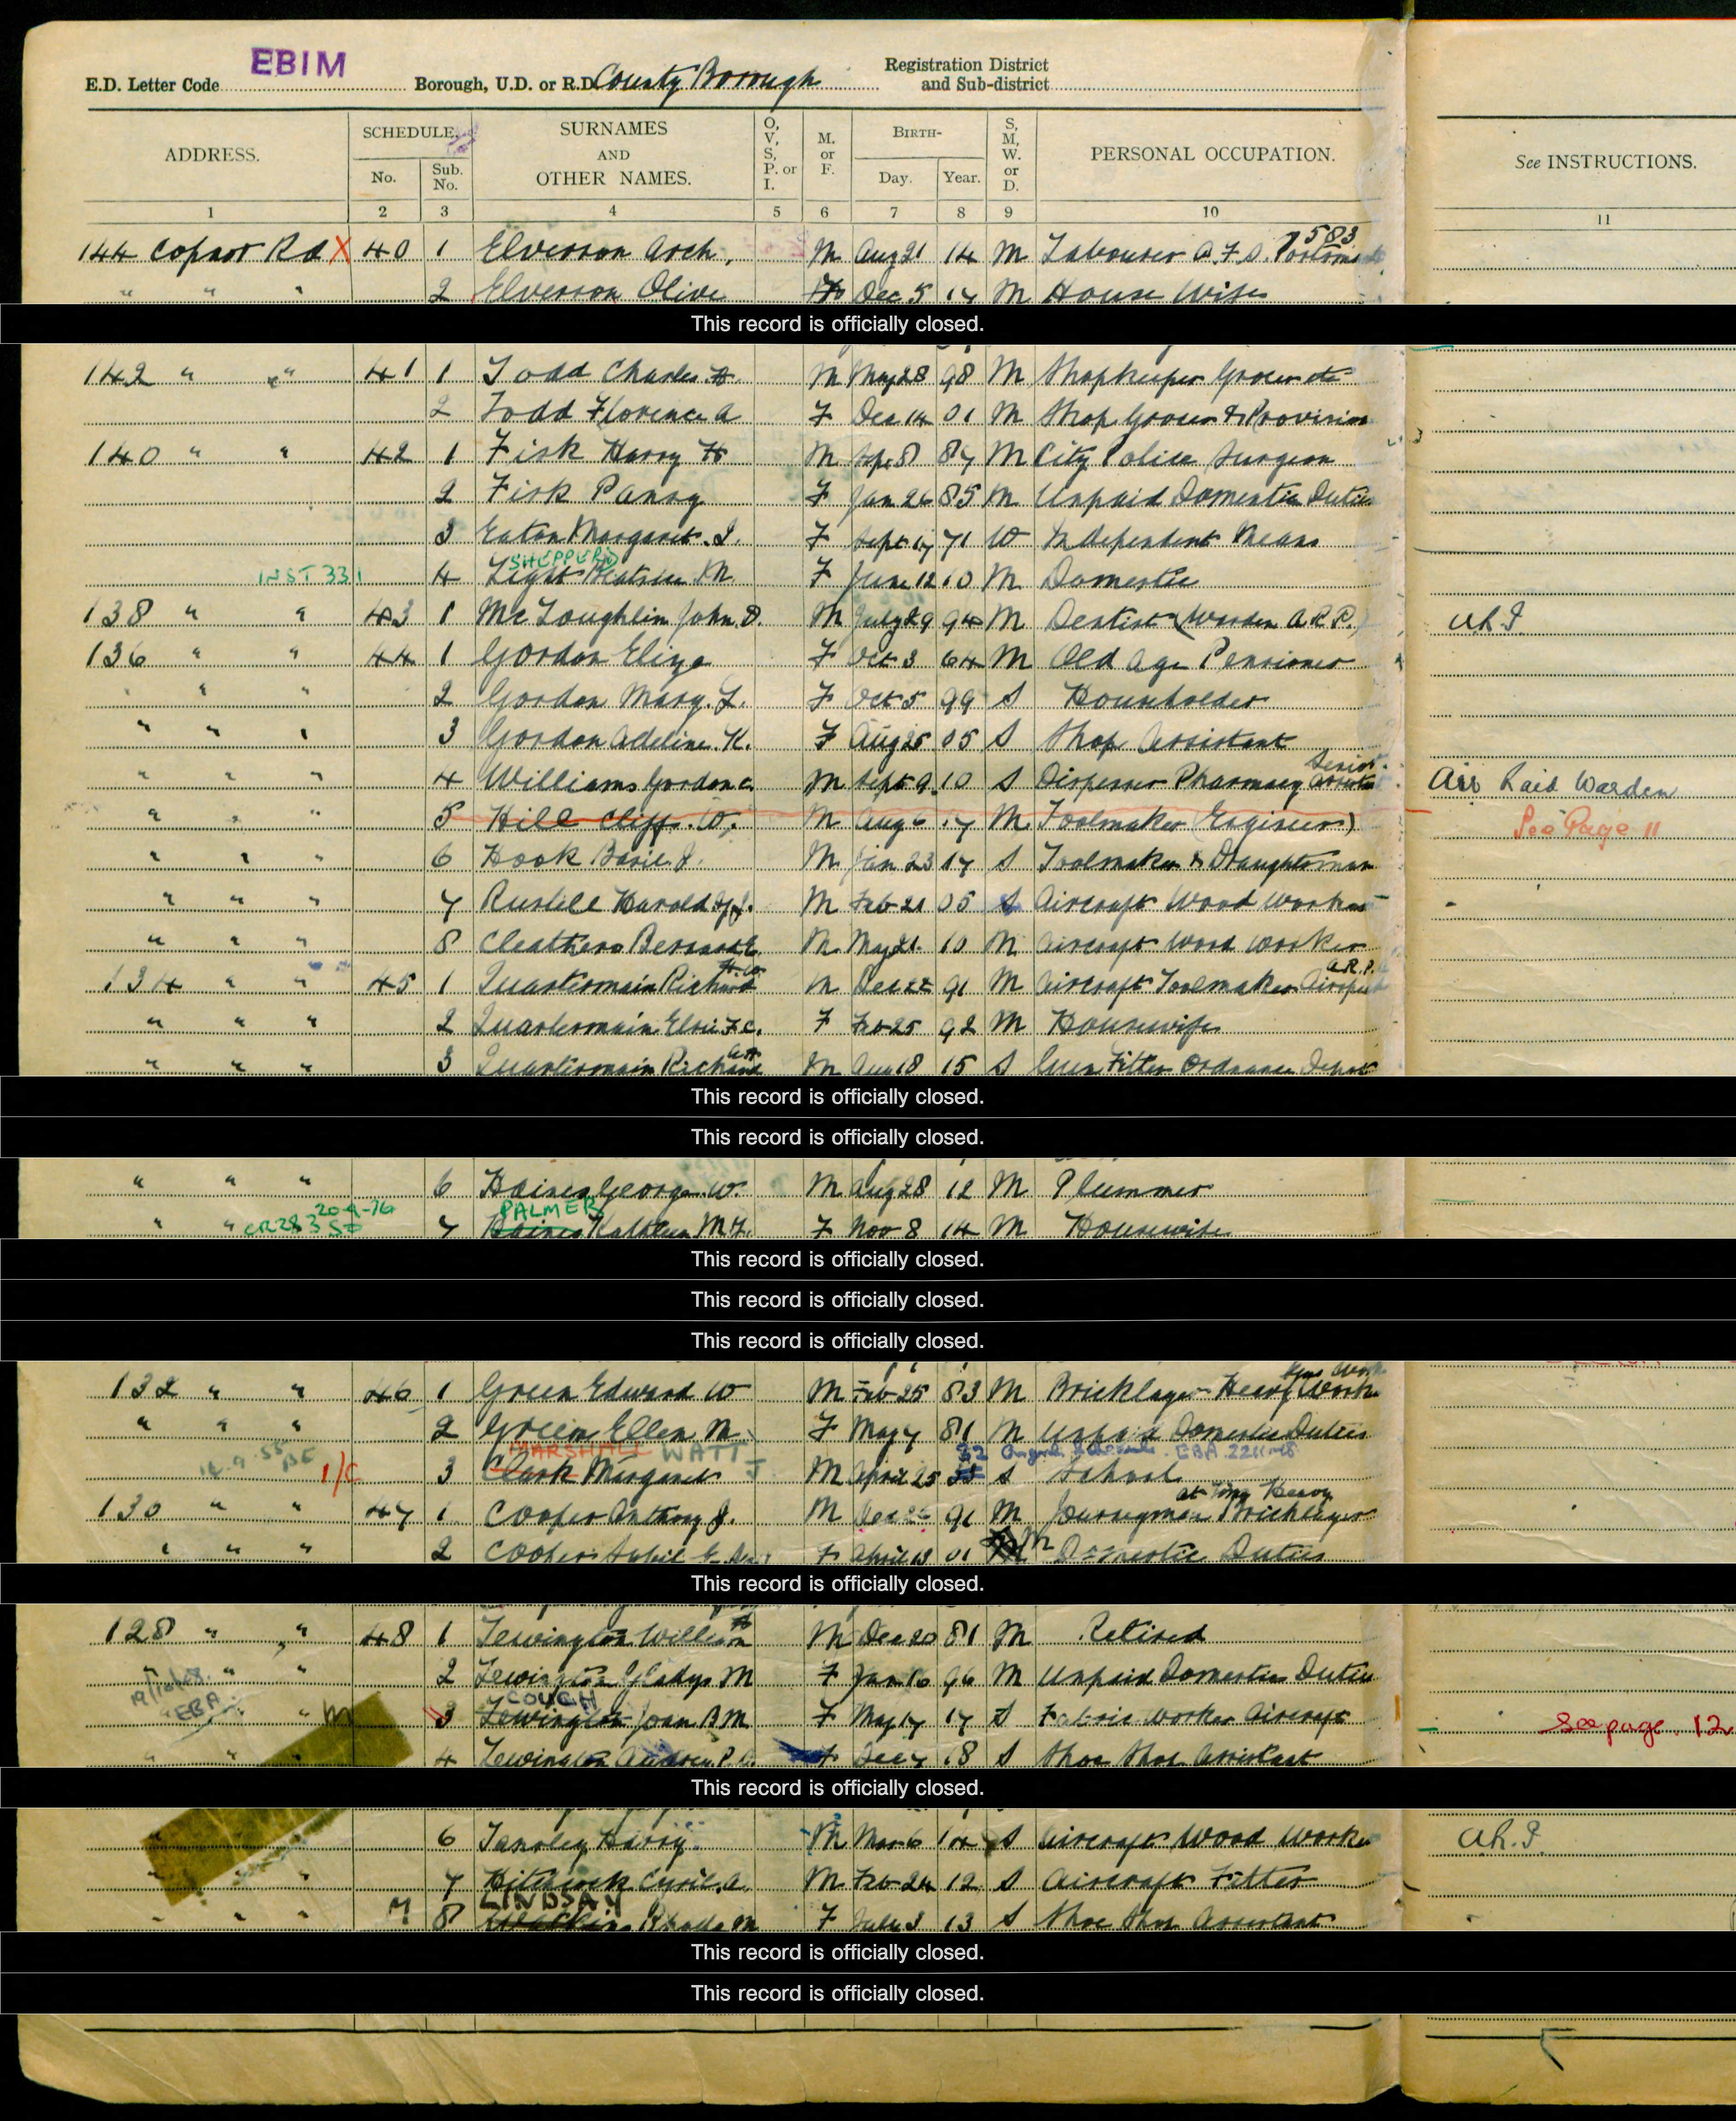 EBIM
E.D. Letter Code Borough, U.D. or R.D. County Borough Registration District and Sub-district
ADDRESS. SCHEDULE. No. Sub. No. SURNAMES AND OTHER NAMES. O, V, S, P. or I. M. or F. BIRTH- Day. Year. S, M, W. or D. PERSONAL OCCUPATION. See INSTRUCTIONS.
1 2 3 4 5 6 7 8 9 10 11
583
144 Copnor Rd X 40 1 Elverson Arch. M Aug 21 14 M Labourer A.F.S.
" " " 2 Elverson Olive F Dec 5 17 M House Wife
This record is officially closed.
142 " " 41 1 Todd Charles H. M May 28 98 M Shopkeeper Grocer etc
2 Todd Florence A F Dec 14 01 M Shop Grocer & Provision
140 " " 42 1 Fisk Harry H M Sept 8 87 M City Police Surgeon
2 Fisk Pansy F Jan 26 85 M Unpaid Domestic Duties
3 Eaton Margaret. J. F Sept 17 71 W Independent Means
SHEPPERD
INST 331 4 Light Beatrice M F June 12 10 M Domestic
138 " " 43 1 McLoughlin John. D. M July 29 94 M Dentist (Warden A.R.P.)
136 " " 44 1 Gordon Eliza F Oct 3 64 M Old Age Pensioner
" " 2 Gordon Mary. L. F Oct 5 99 S Householder
" " " 3 Gordon Adeline. K. F Aug 25 05 S Shop Assistant
Senior
" " " 4 Williams Gordon C. M Sept 9 10 S Dispenser Pharmacy Air Raid Warden
" " " 5 Hill Cliff. W. M Aug 6 17 M Toolmaker (Engineer) See Page 11
" " " 6 Hook Basil. J. M Jan 23 17 S Toolmaker & Draughtsman
" " " 7 Harold M Feb 21 05 S Aircraft Wood Worker
" " " 8 Cleathero Bernard M May 21 10 M Aircraft Wood Worker
A.R.P.
134 " " 45 1 Quartermain Richard M Dec 22 91 M Aircraft Toolmaker
" " " 2 Quartermain Elsie F.C. F Feb 25 92 M Housewife
" " " 3 Quartermain Richard M Aug 18 15 S Gun Fitter Ordnance Depot
This record is officially closed.
This record is officially closed.
" " " 6 Haines George. W. M Aug 28 12 M Plummer
PALMER
" " 7 Haines Kathleen M F Nov 8 14 M Housewife
This record is officially closed.
This record is officially closed.
This record is officially closed.
132 " " 46 1 Green Edward W M Feb 25 83 M Bricklayer Heavy Work
" " " 2 Green Ellen M. F May 7 81 M Unpaid Domestic Duties
MARSHALL WATT
3 Clark Margaret M April 25 S School
at Heavy
130 " " 47 1 Cooper Anthony J. M Dec 91 M Journeyman Bricklayer
" " " 2 Cooper F April 13 01 M Domestic Duties
This record is officially closed.
128 " " 48 1 Lewington William M Dec 20 81 M Retired
" " " 2 Lewington Gladys M F Jan 96 M Unpaid Domestic Duties
COUCH
EBA 3 Lewington Joan B M. F May 17 17 S Fabric Worker Aircraft See page. 12
4 Lewington Audrey P. F Dec 7 18 S Shoe Shop Assistant
This record is officially closed.
6 Tansley Harry. M Mar 6 S Aircraft Wood Worker
7 Hitchcock Cyril. A. M Feb 24 12 S Aircraft Fitter
LINDSAY
" " " 8 Rhoda M F July 3 13 S Shoe Shop Assistant
This record is officially closed.
This record is officially closed.